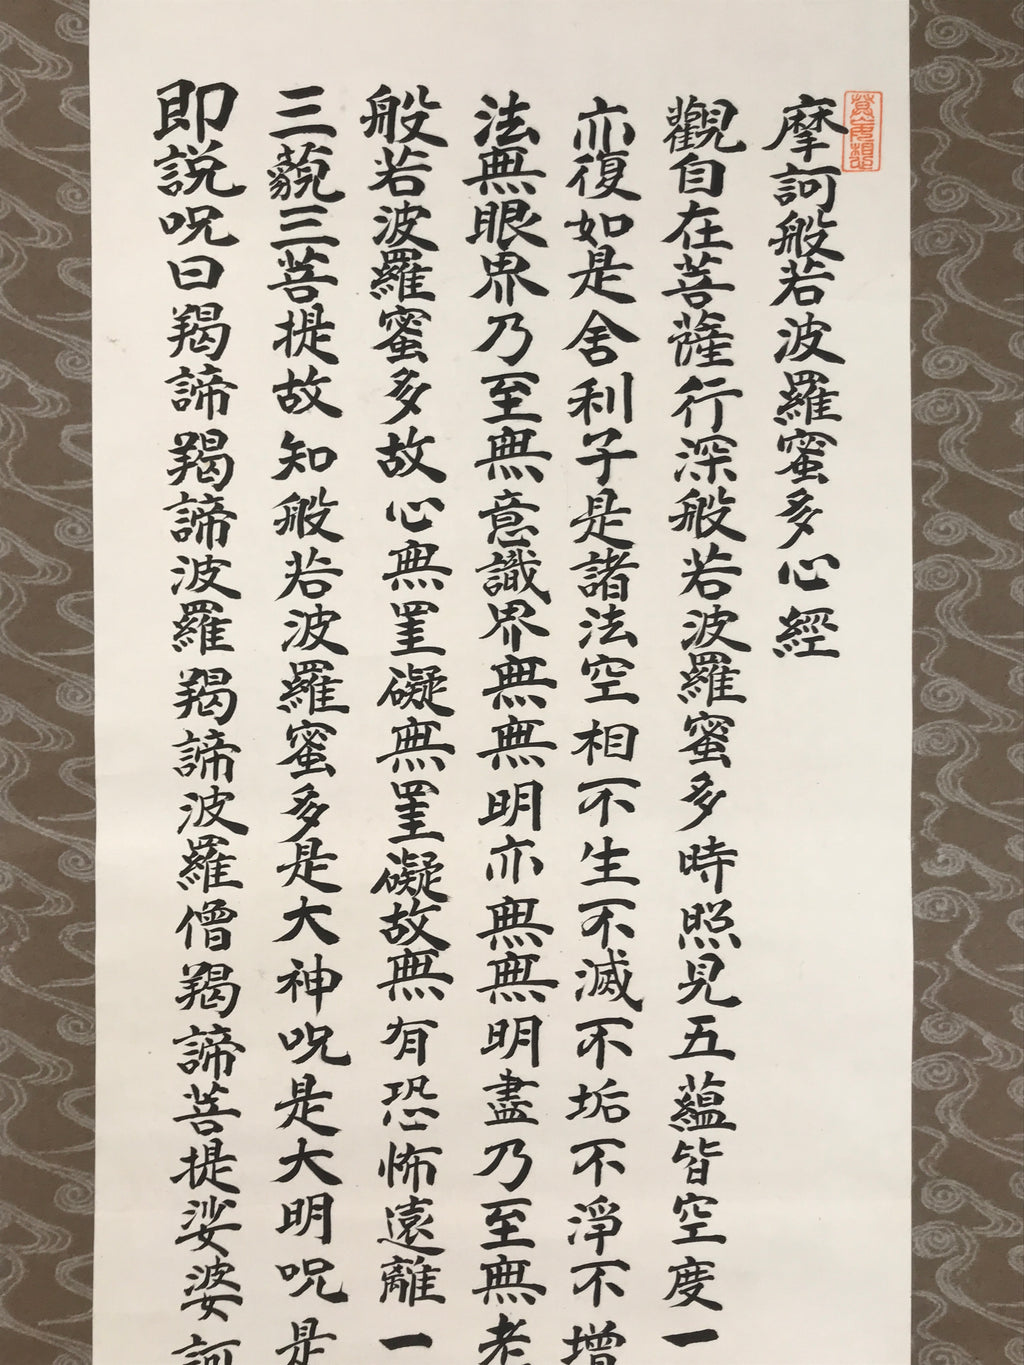 摩訶般若波羅蜜多心經
觀自在菩薩行深般若波羅蜜多時照見五蘊皆空度一
亦復如是舍利子是諸法空相不生不滅不垢不淨不增
法無眼界乃至無意識界無無明亦無無明盡乃至無老
般若波羅蜜多故心無罣礙無罣礙故無有恐怖遠離一
三藐三菩提故知般若波羅蜜多是大神呪是大明呪是
即説呪曰羯諦羯諦波羅羯諦波羅僧羯諦菩提娑婆訶